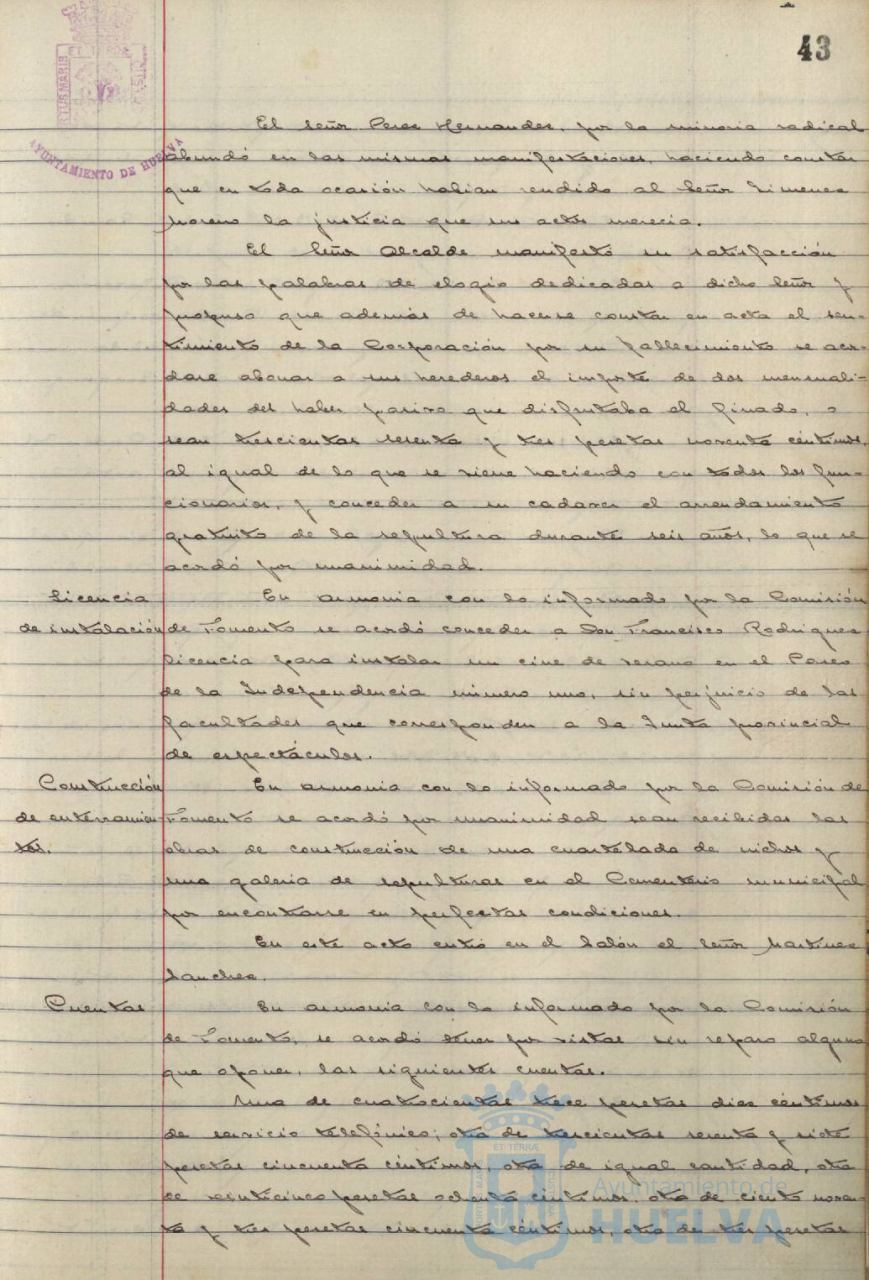 43
PORTUS MARIS
AYUNTAMIENTO DE HUELVA
El Señor Perez Hernandez, por la minoria radical
abundó en las mismas manifestaciones, haciendo constar
que en toda ocasión habian rendido al Señor Jimenez
Moreno la justicia que sus actos merecia.
El Señor Alcalde manifestó su satisfacción
por las palabras de elogio dedicadas a dicho Señor y
propuso que además de hacerse constar en acta el sen-
timiento de la Corporación por su fallecimiento se acor-
dase abonar a sus herederos el importe de dos mensuali-
dades del haber pasivo que disfrutaba el finado, o
sean trescientas sesenta y tres pesetas noventa céntimos,
al igual de lo que se viene haciendo con todos los fun-
cionarios, y conceder a su cadaver el arrendamiento
gratuito de la sepultura durante seis años, lo que se
acordó por unanimidad.
Licencia
de instalación
En armonia con lo informado por la Comisión
de Fomento se acordó conceder a Don Francisco Rodriguez
licencia para instalar un cine de verano en el Paseo
de la Independencia número uno, sin perjuicio de las
facultades que corresponden a la Junta provincial
de espectáculos.
Construcción
de enterramien-
tos.
En armonia con lo informado por la Comisión de
Fomento se acordó por unanimidad sean recibidas las
obras de construcción de una cuartelada de nichos y
una galeria de sepulturas en el Cementerio municipal
por encontrarse en perfectas condiciones.
En este acto entró en el Salón el Señor Martinez
Sanchez.
Cuentas
En armonia con lo informado por la Comisión
de Fomento, se acordó tener por vistas sin reparo alguno
que oponer, las siguientes cuentas.
Una de cuatrocientas trece pesetas diez céntimos
de servicio telefónico; otra de trescientas sesenta y siete
pesetas cincuenta céntimos, otra de igual cantidad, otra
de veinticinco pesetas ochenta céntimos, otra de ciento noven-
ta y tres pesetas cincuenta céntimos, otra de tres pesetas
Ayuntamiento de
HUELVA